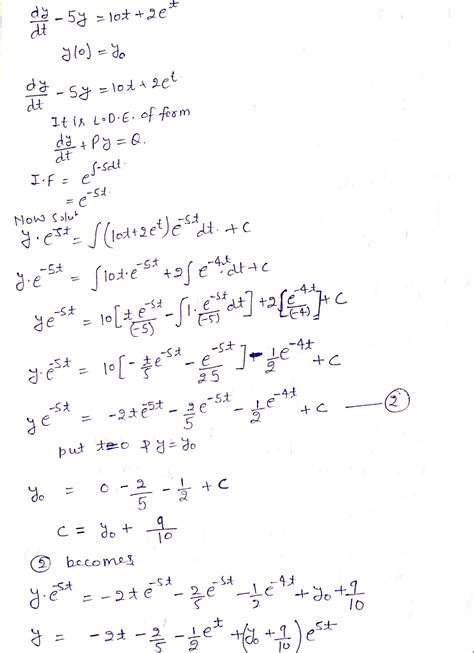 dy/dt - 5y = 10t + 2e^t
y(0) = y₀
dy/dt - 5y = 10t + 2e^t.
It is L.D.E. of form
dy/dt + Py = Q.
I.F = e^∫-5dt.
= e^-5t.
Now Solut
y·e^-5t = ∫(10t+2e^t)e^-5t dt. + C
y·e^-5t = ∫10t·e^-5t + 2∫e^-4t·dt + C
ye^-5t = 10[t e^-5t/(-5) - ∫1·e^-5t/(-5) dt] + 2[e^-4t/(-4)] + C
y·e^-5t = 10[-t/5 e^-5t - e^-5t/25] - 1/2 e^-4t + C
ye^-5t = -2te^-5t - 2/5 e^-5t - 1/2 e^-4t + C — ②
put t=0 & y=y₀
y₀ = 0 - 2/5 - 1/2 + C
C = y₀ + 9/10
② becomes
y·e^-5t = -2te^-5t - 2/5 e^-5t - 1/2 e^-4t + y₀ + 9/10
y = -2t - 2/5 - 1/2 e^t + (y₀ + 9/10) e^5t